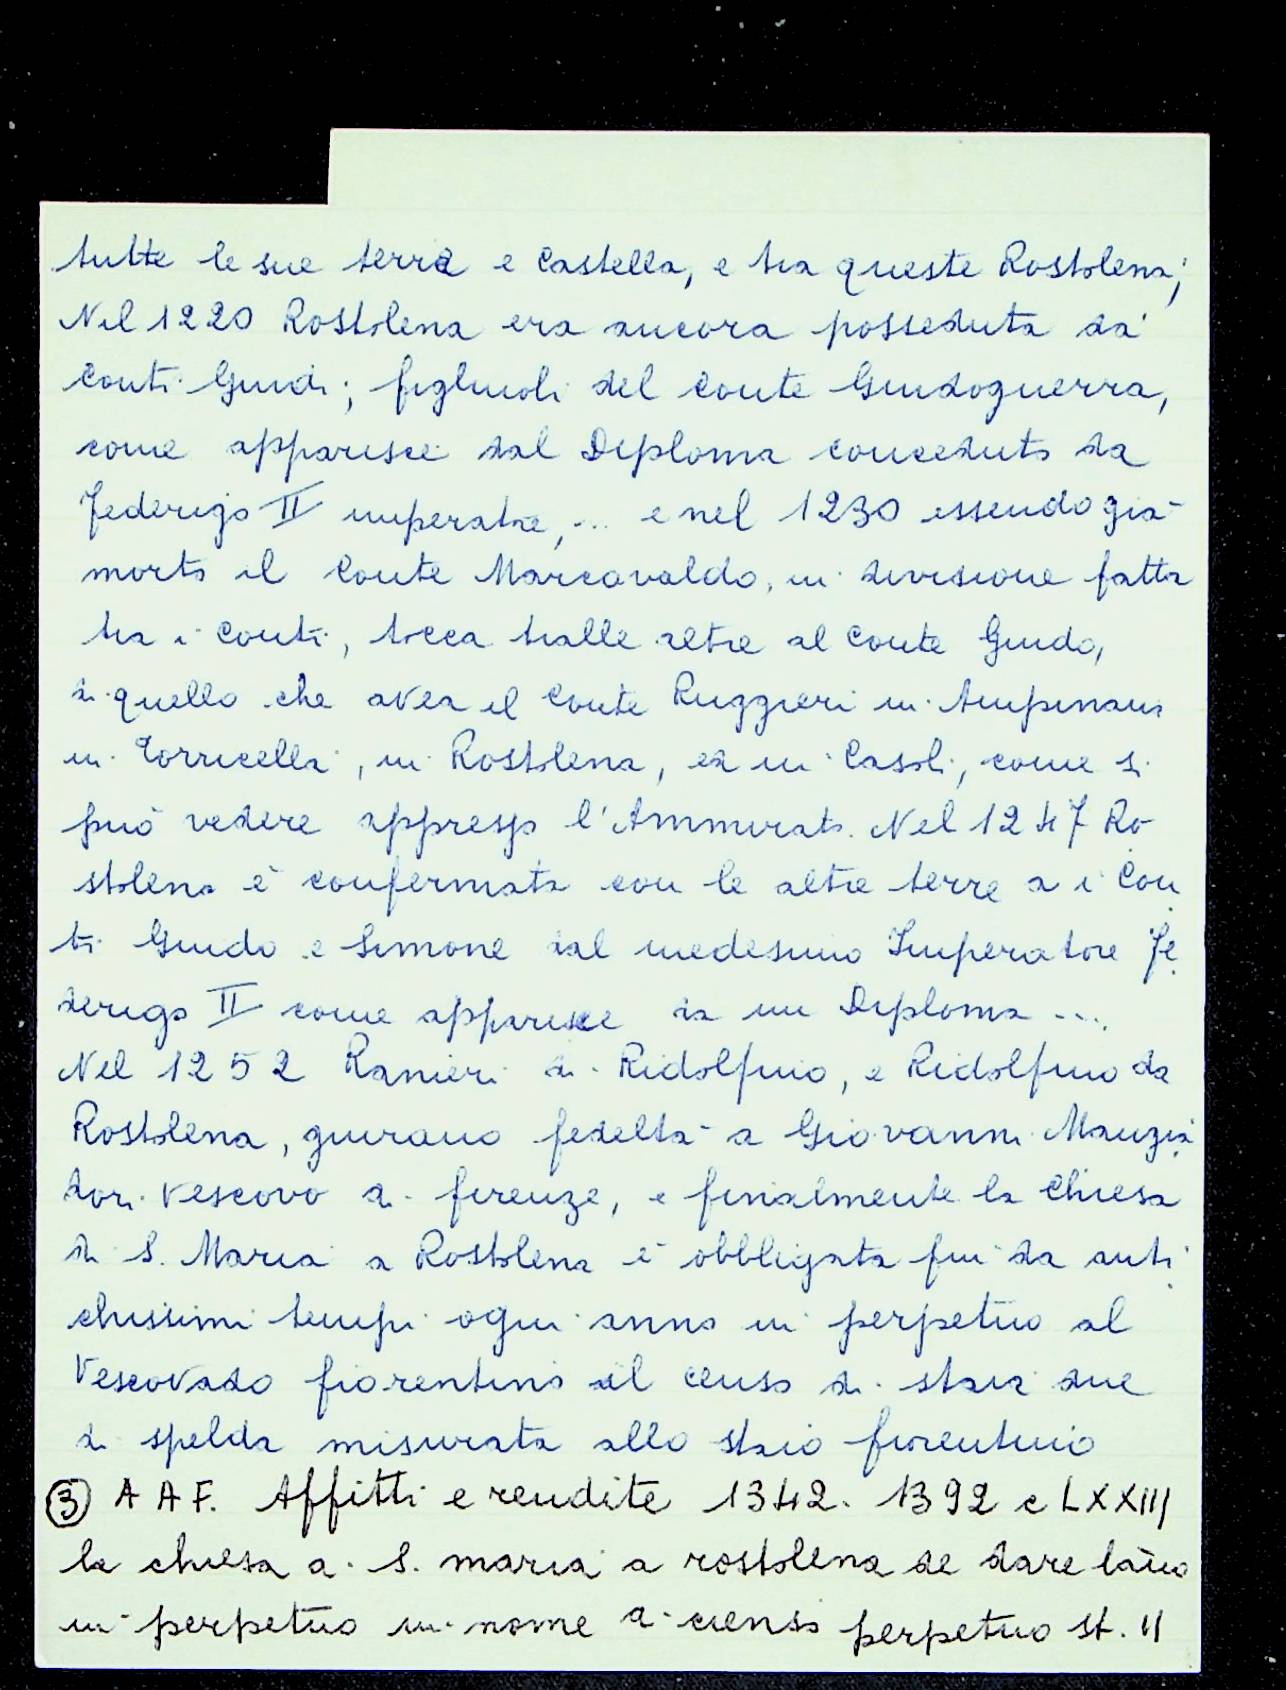 tutte le sue terre e Castella, e tra queste Rostolena;
Nel 1220 Rostolena era ancora posseduta da'
Conti Guidi; figliuoli del Conte Guidoguerra,
come apparisce dal Diploma conceduto da
Federigo II imperatre, ... e nel 1230 essendo già
morto il Conte Marcovaldo, in divisione fatta
tra i Conti, tocca tralle altre al Conte Guido,
di quello che avea il Conte Ruggieri in Ampinana
in Torricella, in Rostolena, ed in Casoli, come si
può vedere appresso l'Ammirato. Nel 1247 Ro-
stolena è confermata con le altre terre a i Con
ti Guido e Simone dal medesimo Imperatore Fe
derigo II come apparisce da un Diploma ...
Nel 1252 Ranieri di Ridolfino, e Ridolfino da
Rostolena, giurano fedeltà a Giovanni Mangia
dori Vescovo di Firenze, e finalmente la Chiesa
di S. Maria a Rostolena è obbligata fin da anti
chissimi tempi ogni anno in perpetuo al
Vescovado fiorentino il censo di staia due
di spelda misurata allo staio fiorentino
③ A A F. Affitti e rendite 1342. 1392 c LXXIII
la chiesa di S. maria a rostolena de dare l'año
in perpetuo in nome di cienso perpetuo st. II